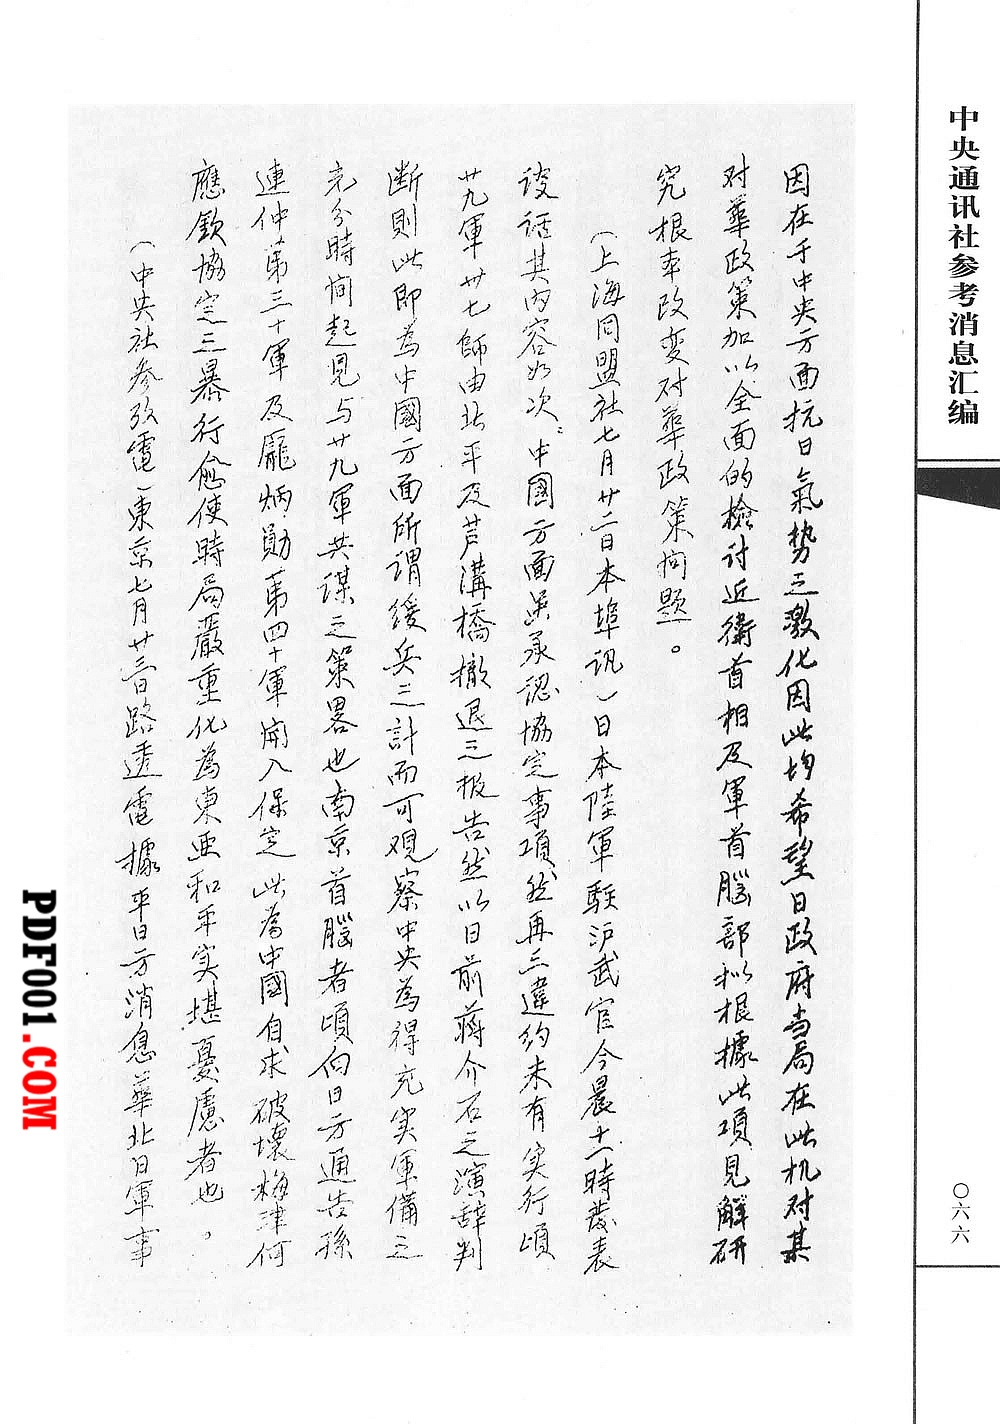 中央通讯社参考消息汇编
〇六六
因在于中央方面抗日氣势之激化因此均希望日政府当局在此机对其
对華政策加以全面的檢讨近衛首相及軍首腦部拟根據此項見解研
究根本改变对華政策问题。
(上海同盟社七月廿二日本埠讯)日本陸軍駐沪武官今晨十一時發表
谈话其内容如次:中國方面虽承認協定事項然再三違约未有实行頃
廿九軍卅七師由北平及芦溝橋撤退之报告然以日前蔣介石之演辞判
断則此即為中國方面所谓缓兵之計而可观察中央為得充实軍備之
充分時间起見与廿九軍共谋之策畧也南京首腦者頃向日方通告孫
連仲第三十軍及龐炳勛第四十軍開入保定此為中國自求破壞梅津何
應欽協定之暴行愈使時局嚴重化為東亜和平实堪憂慮者也。
(中央社参攷電)東京七月廿三日路透電據平日方消息華北日軍事
PDF001.COM